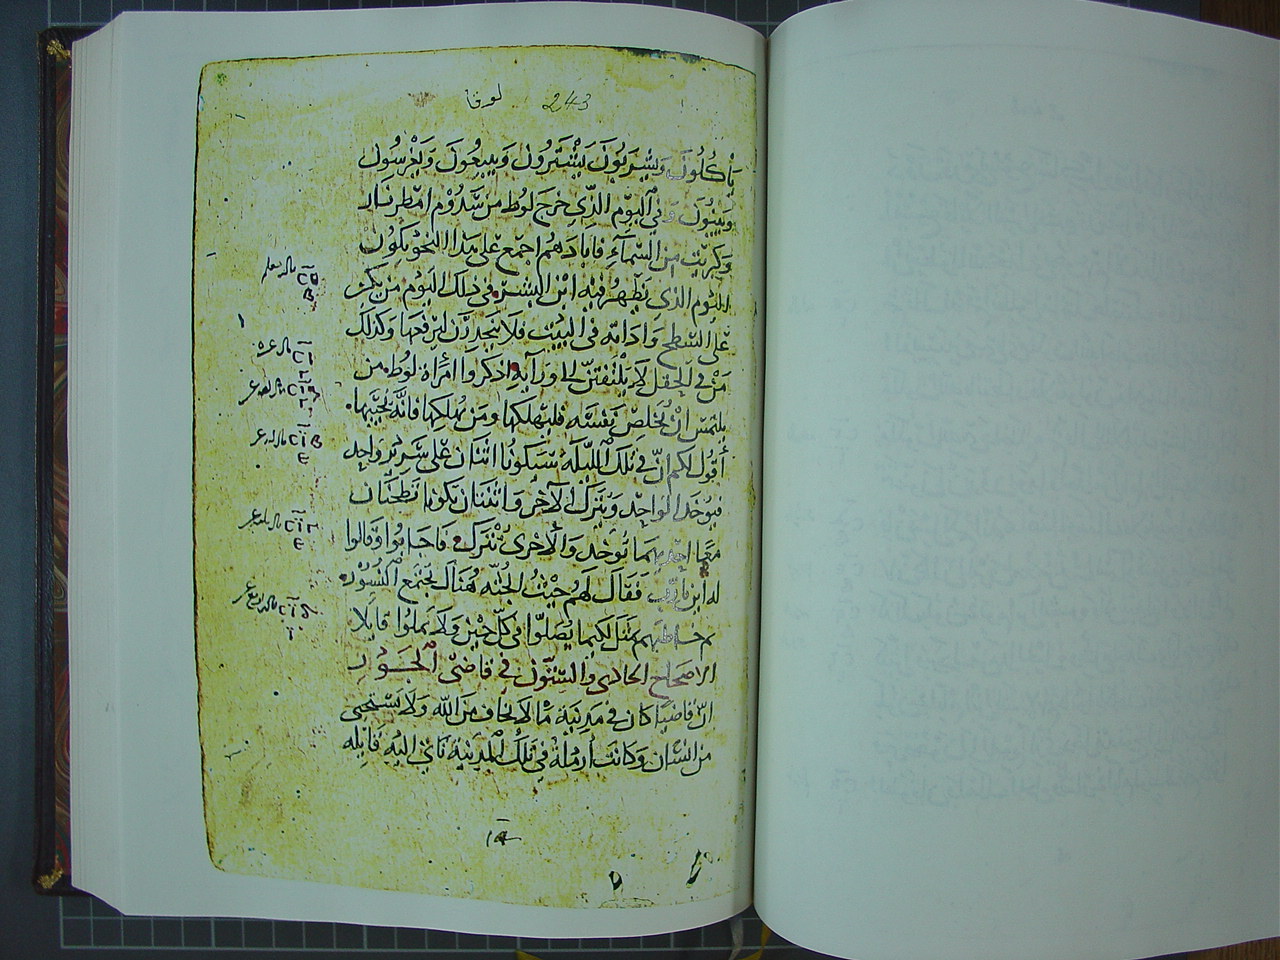 لوقا 243
يَأكُلُونَ وَيَشْرَبُونَ يَشْتَرُونَ وَيَبِيعُونَ وَيَغْرِسُونَ
وَيَبْنُونَ وَفي اليَوْم الذِي خَرَجَ لوُط من سَدُوْم امْطر نَار
وَكبريت مِن السَّمَآءِ فابَادَهُم اجمع على هَذا النحو يَكوُن
اليَوم الذى يَظهرُ فيهِ ابْن البشر في ذلِكَ اليَوم من يَكن
عَلى السّطح وَادَاته في البَيْت فلَا يَنحدِرَن ليَرفعهَا وَكذلكَ
مَنْ في الحقل لَا يَلْتفِتنّ إلى وَرَآيهِ اذكرُوا امْرَأة لوُط من
يلتمسْ انْ يُخلصْ نفسَه فليهلكها ومَن يُهلكها فانّه يُحييها
أقول لكم انّ في تلكَ الليلَه سَيَكونُا اثنَان عَلى سَرير وَاحِد
فيُوخَد الوَاحِد وَيُترَك الآخر وَاثنتان يَكونا تطحنَان
معًا احدَيهمَا تُوخد وَالأخرَى تُتْرَك فاجَابُوا وَقالوا
له اين يَارَب فقالَ لهُم حَيْثُ الجُثّه هُنَاك تجتمع النسُوْر
خاطبَهم بمَثل لكيما يُصَلوّا في كلّ حيْن وَلَا يَملوُا قايلا
الاصحَاح الحادى والستّون في قاضى الجَوْر
انّ قاضيًا كان في مَدينَة مْا لَا يخاف مِنَ الله وَلَا يَسْتحيى
من انسَان وَكانت أرمَلة في تلكَ المدينَة تاتي اليْه قايله